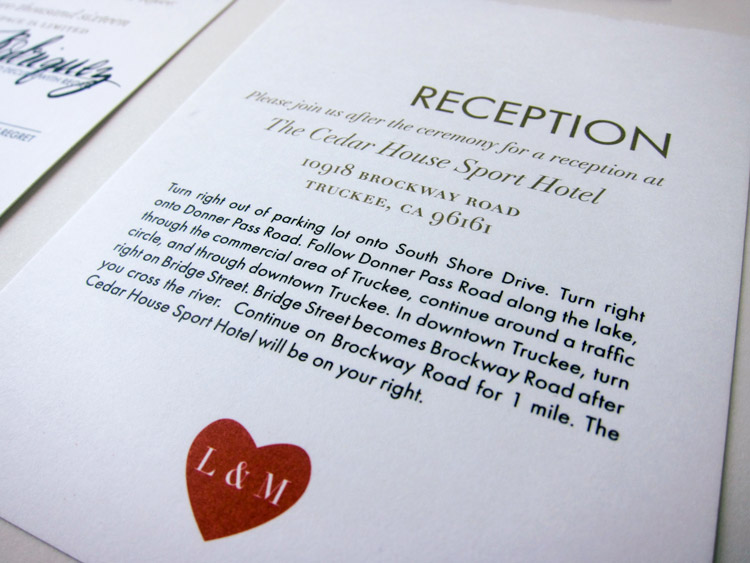 thousand sixteen
IS LIMITED
Rodriguez
REGRET
RECEPTION
Please join us after the ceremony for a reception at
The Cedar House Sport Hotel
10918 BROCKWAY ROAD
TRUCKEE, CA 96161
Turn right out of parking lot onto South Shore Drive. Turn right
onto Donner Pass Road. Follow Donner Pass Road along the lake,
through the commercial area of Truckee, continue around a traffic
circle, and through downtown Truckee. In downtown Truckee, turn
right on Bridge Street. Bridge Street becomes Brockway Road after
you cross the river. Continue on Brockway Road for 1 mile. The
Cedar House Sport Hotel will be on your right.
L & M